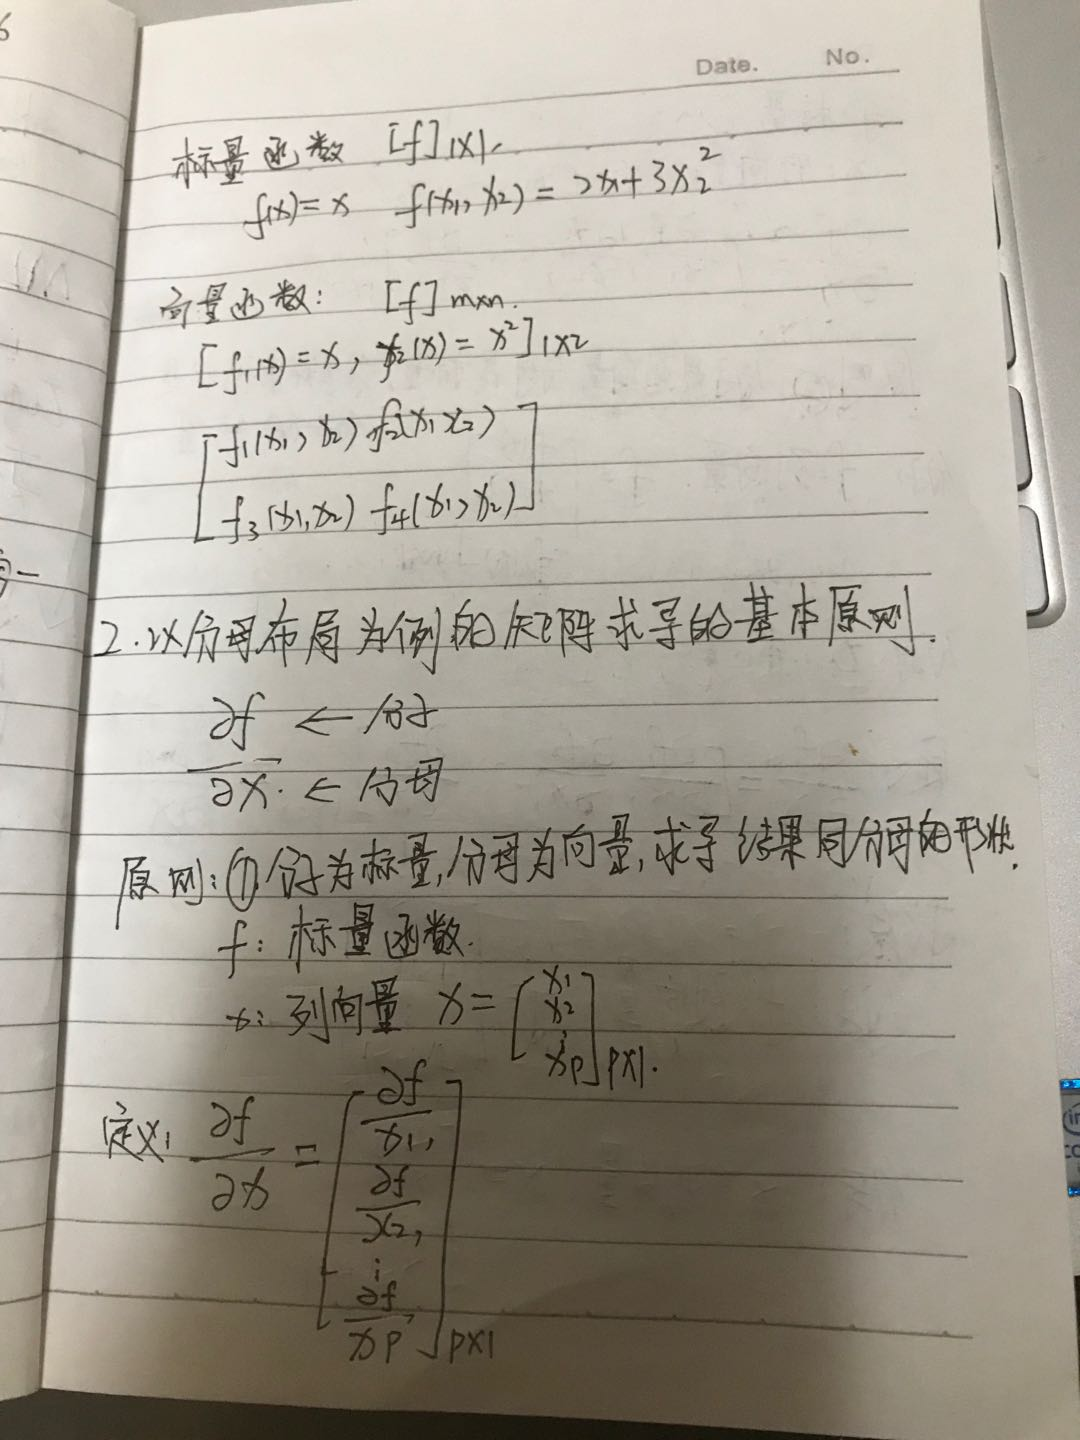 Date. No.
标量函数 [f]1×1.
f(x)=x f(x1, x2) = 2x1+3x2²
向量函数: [f]m×n.
[f1(x)=x, f2(x)=x²]1×2
[f1(x1, x2) f2(x1 x2)
f3(x1, x2) f4(x1, x2)]
2.以分母布局为例的矩阵求导的基本原则.
∂f ← 分子
∂x. ← 分母
原则:①分子为标量,分母为向量,求导结果同分母的形状.
f: 标量函数.
x: 列向量 x = [x1 x2 ⋮ xp]p×1.
定义: ∂f/∂x = [∂f/x1, ∂f/x2, ⋮ ∂f/xp]p×1